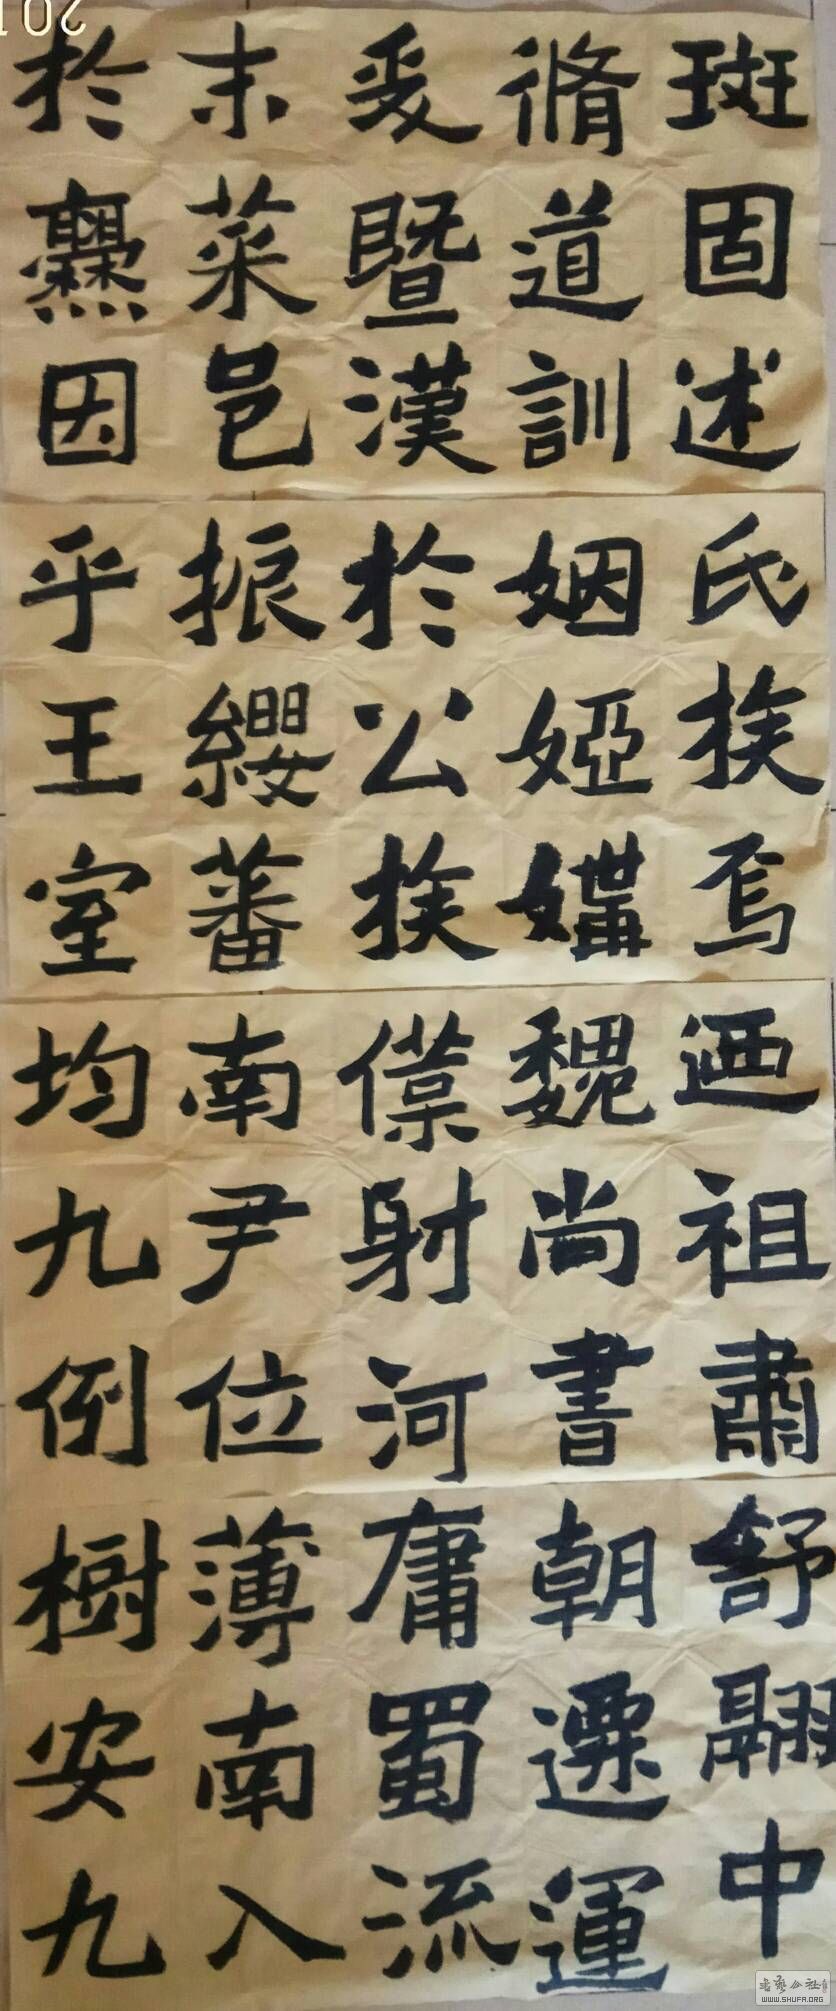 斑固述
脩道訓
爰暨漢
末菜邑
於爨因
氏族焉
姻婭媾
於公族
振纓蕃
乎王室
迺祖肅
魏尚書
僕射河
南尹位
均九例
舒翮中
朝遷運
庸蜀流
薄南入
樹安九
201
书艺公社
WWW.SHUFA.ORG